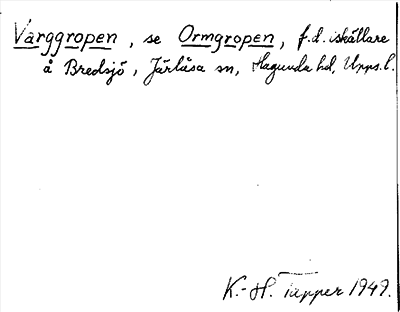 Varggropen, se Ormgropen, f.d. iskällare
å Bredsjö, Järlåsa sn, Hagunda hd, Upps.l.
K.-H. Tapper 1949.